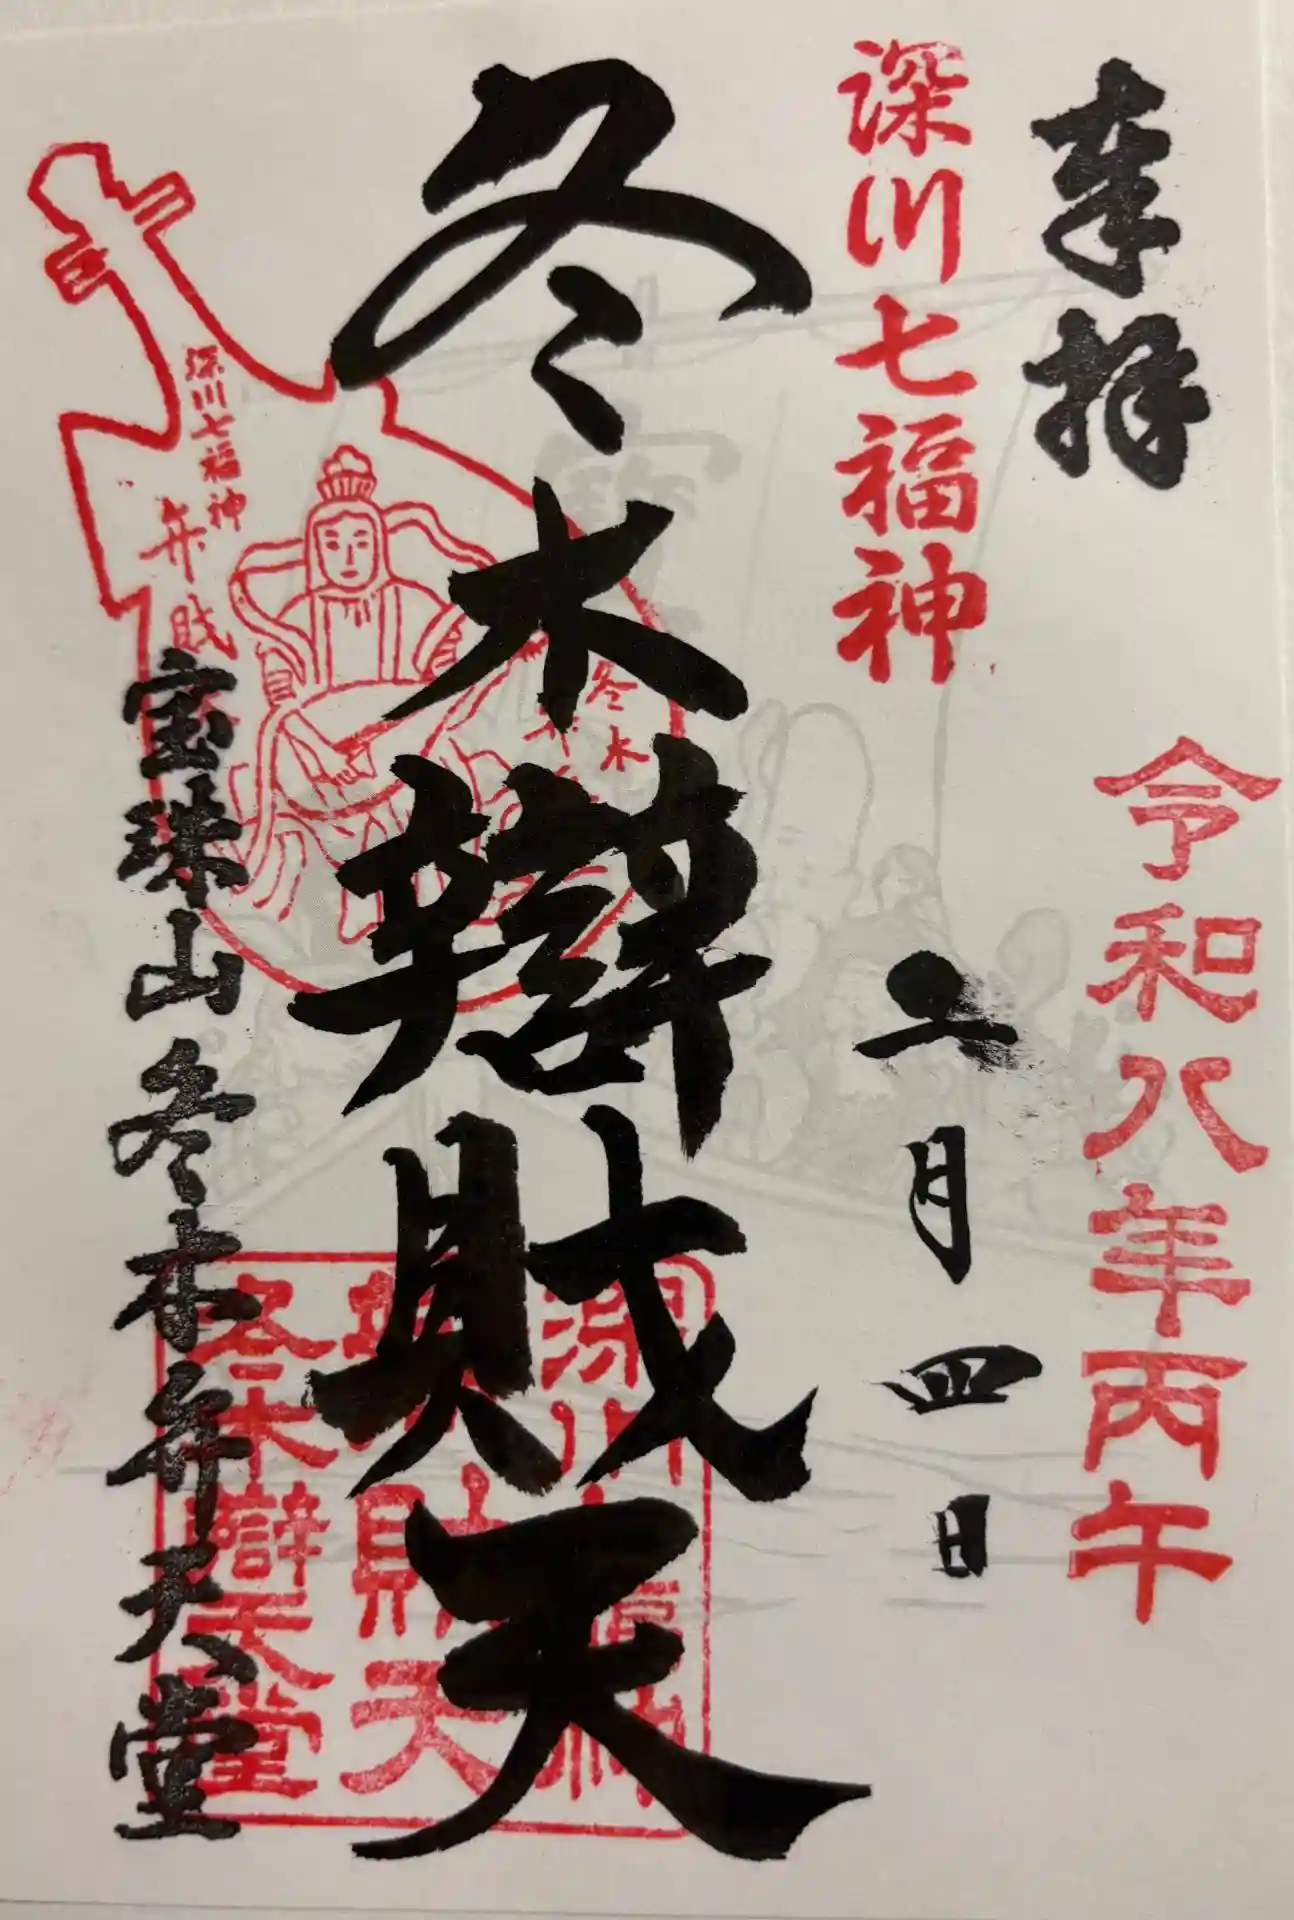 奉拝
令和八年丙午
深川七福神
二月四日
冬木辯財天
深川七福神
弁財
冬木
宝珠山冬木弁天堂
深川七福神
辯財天
冬木辯天堂